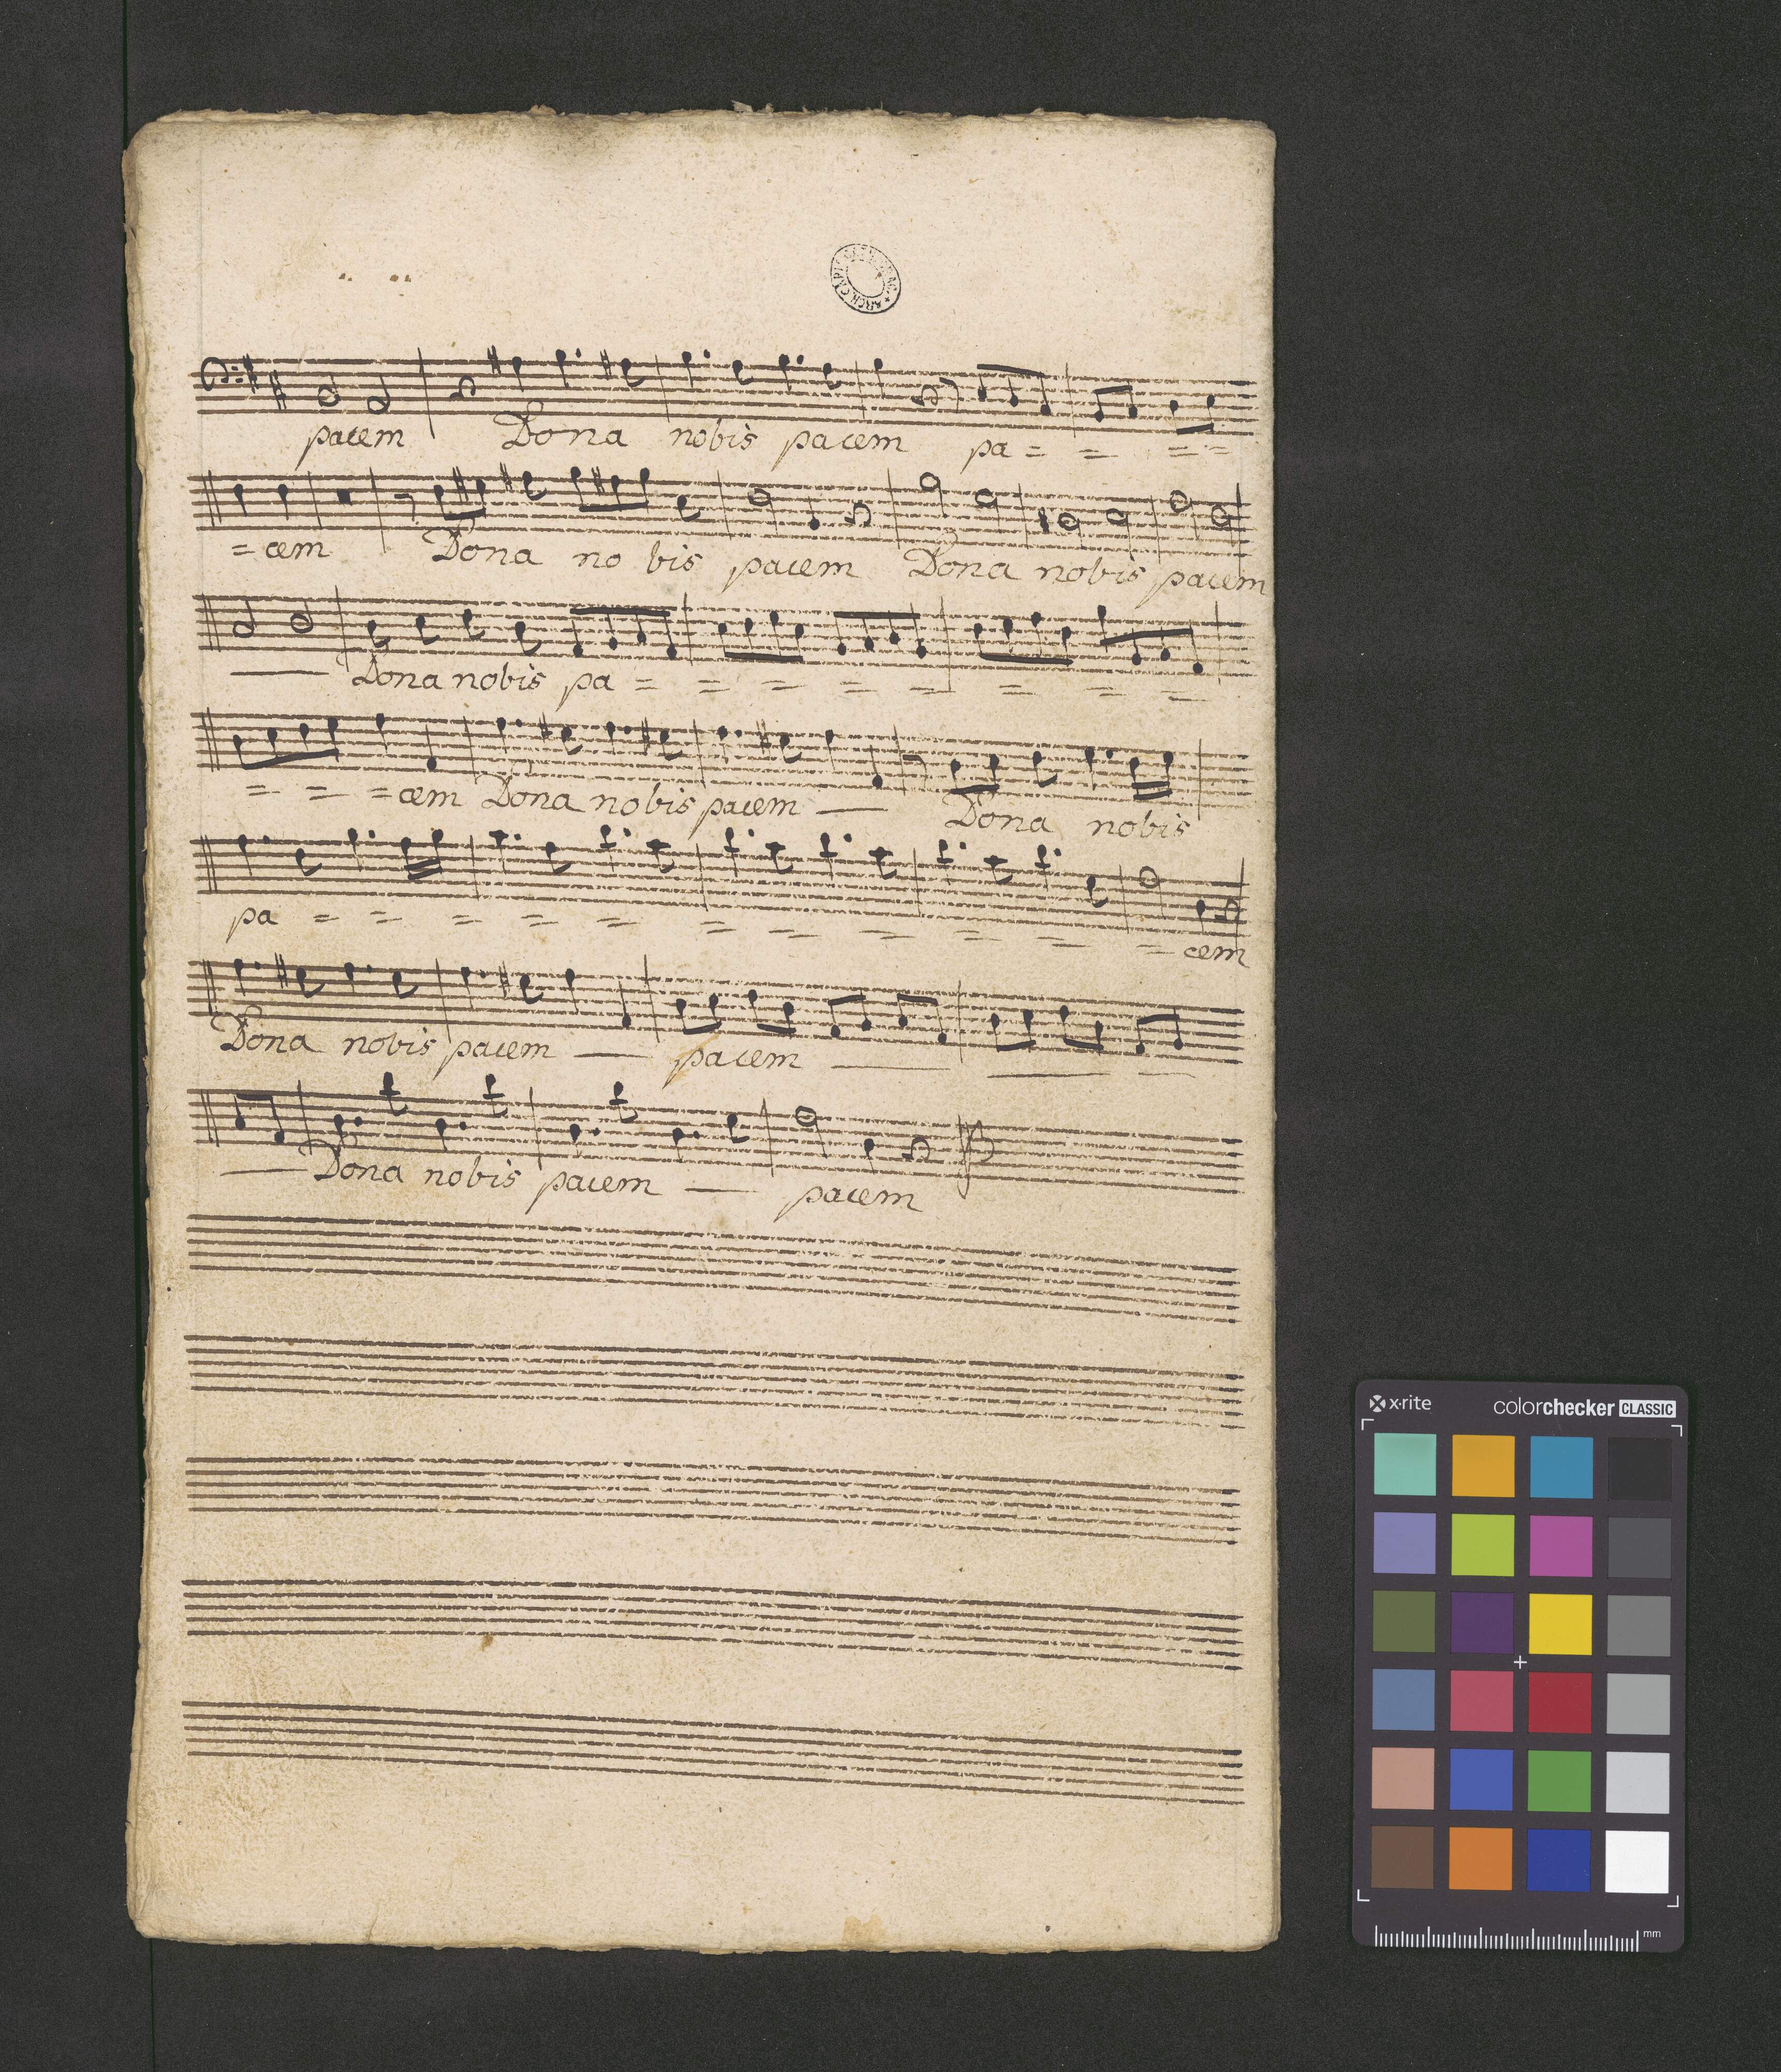 pacem Dona nobis pacem pa = = = =
= cem Dona no bis pacem Dona nobis pacem
— Dona nobis pa = = = = = = = =
= = = cem Dona nobis pacem — Dona nobis
pa = = = = = = = = = = = cem
Dona nobis pacem — pacem — — —
— Dona nobis pacem — pacem
x-rite colorchecker CLASSIC
mm